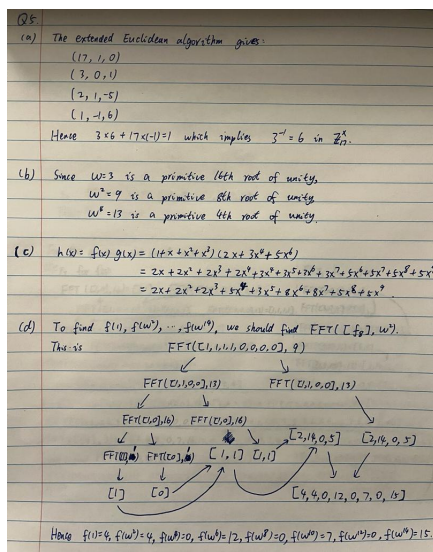 Q5.
(a) The extended Euclidean algorithm gives:
(17, 1, 0)
(3, 0, 1)
(2, 1, -5)
(1, -1, 6)
Hence 3×6 + 17×(-1) = 1 which implies 3⁻¹ = 6 in ℤ₁₇ˣ
(b) Since ω=3 is a primitive 16th root of unity,
ω² = 9 is a primitive 8th root of unity,
ω⁴ = 13 is a primitive 4th root of unity.
(c) h(x) = f(x) g(x) = (1+x+x²+x³) (2x + 3x⁴ + 5x⁶)
= 2x + 2x² + 2x³ + 2x⁴ + 3x⁴ + 3x⁵ + 3x⁶ + 3x⁷ + 5x⁶ + 5x⁷ + 5x⁸ + 5x⁹
= 2x + 2x² + 2x³ + 5x⁴ + 3x⁵ + 8x⁶ + 8x⁷ + 5x⁸ + 5x⁹.
(d) To find f(1), f(ω²), ..., f(ω¹⁴), we should find FFT([f₈], ω²).
This is FFT([1,1,1,1,0,0,0,0], 9)
FFT([1,1,0,0],13) FFT([1,1,0,0],13)
FFT([1,0],16) FFT([1,0],16) [2,14,0,5] [2,14,0,5]
FFT([1], FFT([0], [1,1] [1,1]
[1] [0] [4,4,0,12,0,7,0,15]
Hence f(1)=4, f(ω²)=4, f(ω⁴)=0, f(ω⁶)=12, f(ω⁸)=0, f(ω¹⁰)=7, f(ω¹²)=0, f(ω¹⁴)=15.